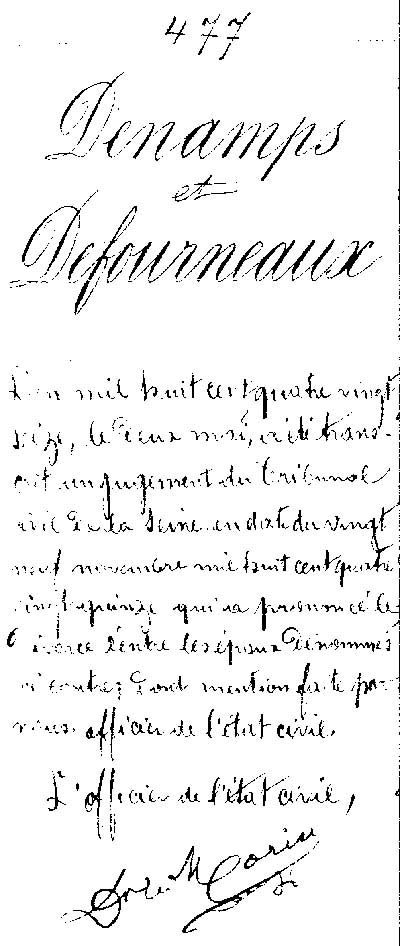 477
Denamps
et
Defourneaux
L'an mil huit cent quatre vingt
seize, le deux mai, a été trans-
crit un jugement du Tribunal
civil de la Seine en date du vingt
neuf novembre mil huit cent quatre
vingt quinze qui a prononcé le
divorce d'entre les époux dénommés
ci contre; dont mention faite par
nous officier de l'état civil.
L'officier de l'état civil,